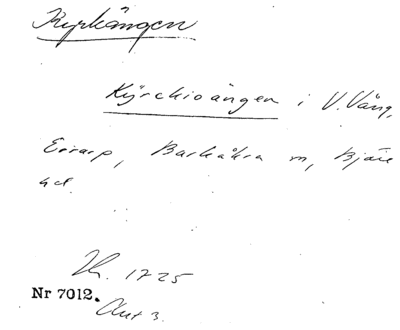 Kyrkängen
Kÿrchioängen i V. Vång,
Errarp, Barkåkra sn, Bjäre
hd.
1725
Nr 7012. Akt 3.